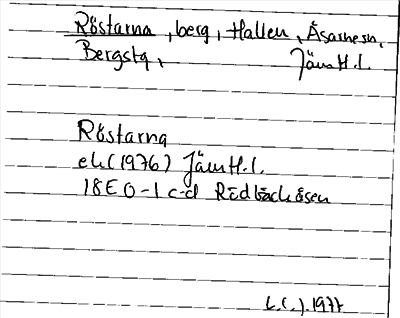 Röstarna, berg, Hallen, Åsarne sn,
Bergs tg, Jämtl. l.
Röstarna
ek (1976) Jämtl. l.
18E 0-1 c-d Rödbäcksåsen
1977